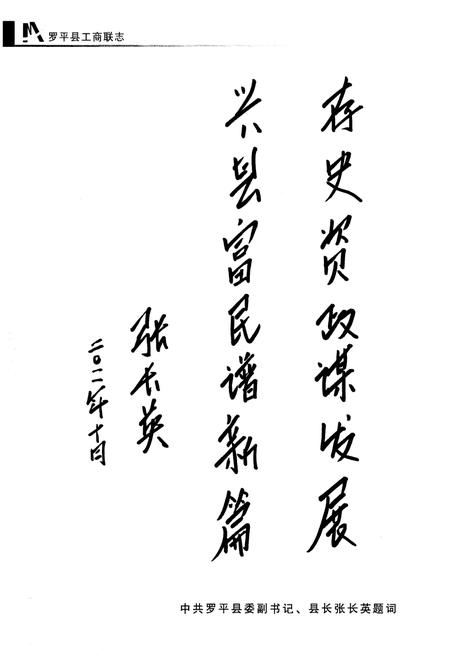 罗平县工商联志
存史资政谋发展
兴县富民谱新篇
张长英
二〇一一年十月
中共罗平县委副书记、县长张长英题词